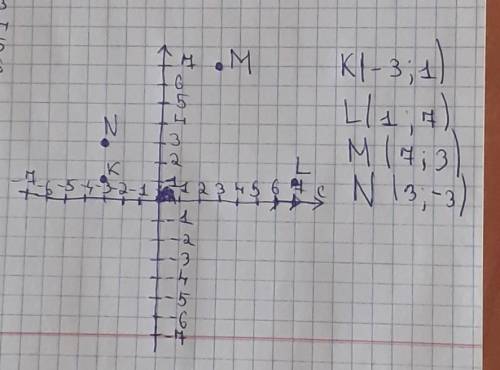 K(-3; 1)
L(1; 7)
M(7; 3)
N(3; -3)
7
M
6
5
4
N
3
2
K
1
L
-7 -6 -5 -4 -3 -2 -1 1 2 3 4 5 6 7
-1
-2
-3
-4
-5
-6
-7